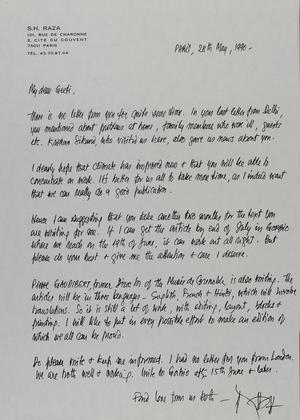 S.H. RAZA
101, RUE DE CHARONNE
2, CITÉ DU COUVENT
75011 PARIS
TEL. 43.70.87.64
Paris, 28th May, 1990.-
My dear Geeti,
There is no letter from you for quite some time. In your last letter from Delhi,
you mentioned about problems at home, family members who were ill, guests
etc. Krishna, who visited us here, also gave us news about you.
I dearly hope that climate has improved now & that you will be able to
concentrate on work. It's better for us all to take more time, as I indeed want
that we can really do a good publication.
Hence I am suggesting that you take another two months for the text you
are writing for me! If I can get the article by end of July in Gorbio
where we reach on the 19th of June, it can work out all right. But
please do your best & give me the attention & care I deserve.
Pierre GAUDIBERT, former Director of the Musée de Grenoble is also writing. The
articles will be in three languages - English, French & Hindi, which will involve
translations. So it is still a lot of work, with editing, layout, photos &
printing. I will like to put in every possible effort to make an edition of
which we all can be proud.
Do please write & keep me informed. I had no letter from you from London.
We are both well & working. Write to Gorbio after 15th June & later.
Fond love from us both -